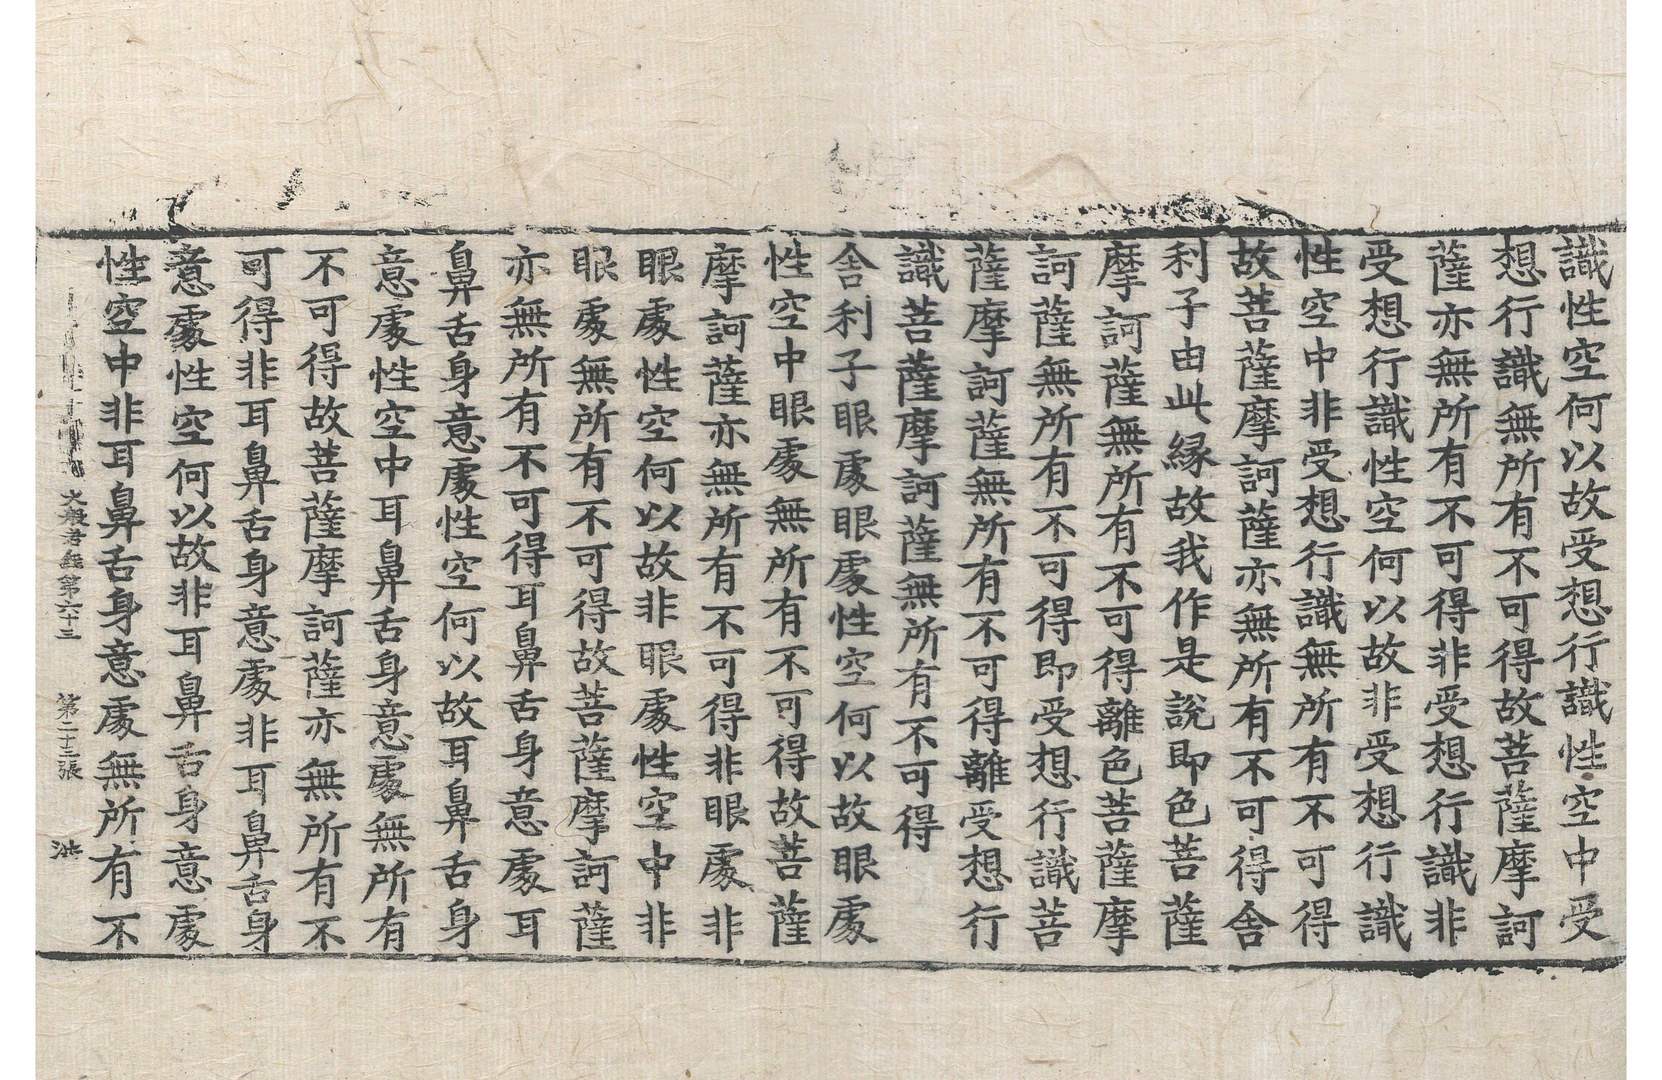 識性空何以故受想行識性空中受
想行識無所有不可得故菩薩摩訶
薩亦無所有不可得非受想行識非
受想行識性空何以故非受想行識
性空中非受想行識無所有不可得
故菩薩摩訶薩亦無所有不可得舍
利子由此緣故我作是說即色菩薩
摩訶薩無所有不可得離色菩薩摩
訶薩無所有不可得即受想行識菩
薩摩訶薩無所有不可得離受想行
識菩薩摩訶薩無所有不可得
舍利子眼處眼處性空何以故眼處
性空中眼處無所有不可得故菩薩
摩訶薩亦無所有不可得非眼處非
眼處性空何以故非眼處性空中非
眼處無所有不可得故菩薩摩訶薩
亦無所有不可得耳鼻舌身意處耳
鼻舌身意處性空何以故耳鼻舌身
意處性空中耳鼻舌身意處無所有
不可得故菩薩摩訶薩亦無所有不
可得非耳鼻舌身意處非耳鼻舌身
意處性空何以故非耳鼻舌身意處
性空中非耳鼻舌身意處無所有不
大般若經第六十三 第二十三張 洪